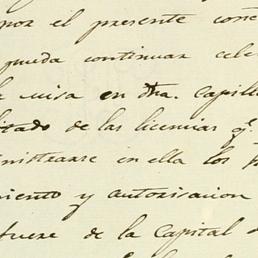 por el presente conc
pueda continuar cele
misa en dha. Capill
de las licencias q.
nistrarse en ella los
iento y autorisacion
fuere de la Capital